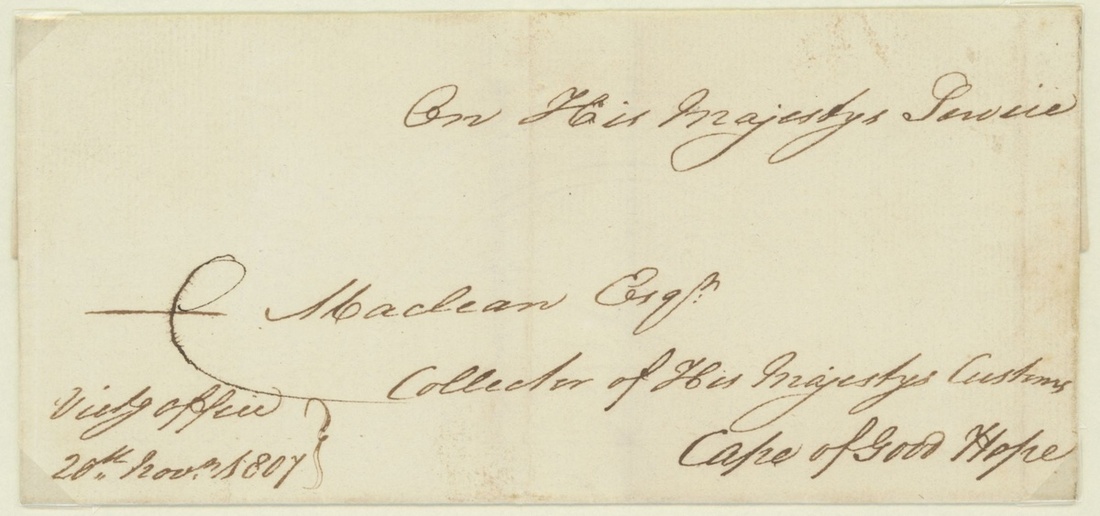 On His Majestys Service
Maclean Esqr.
Collector of His Majestys Customs
Cape of Good Hope
Victg office
20th Novr. 1807